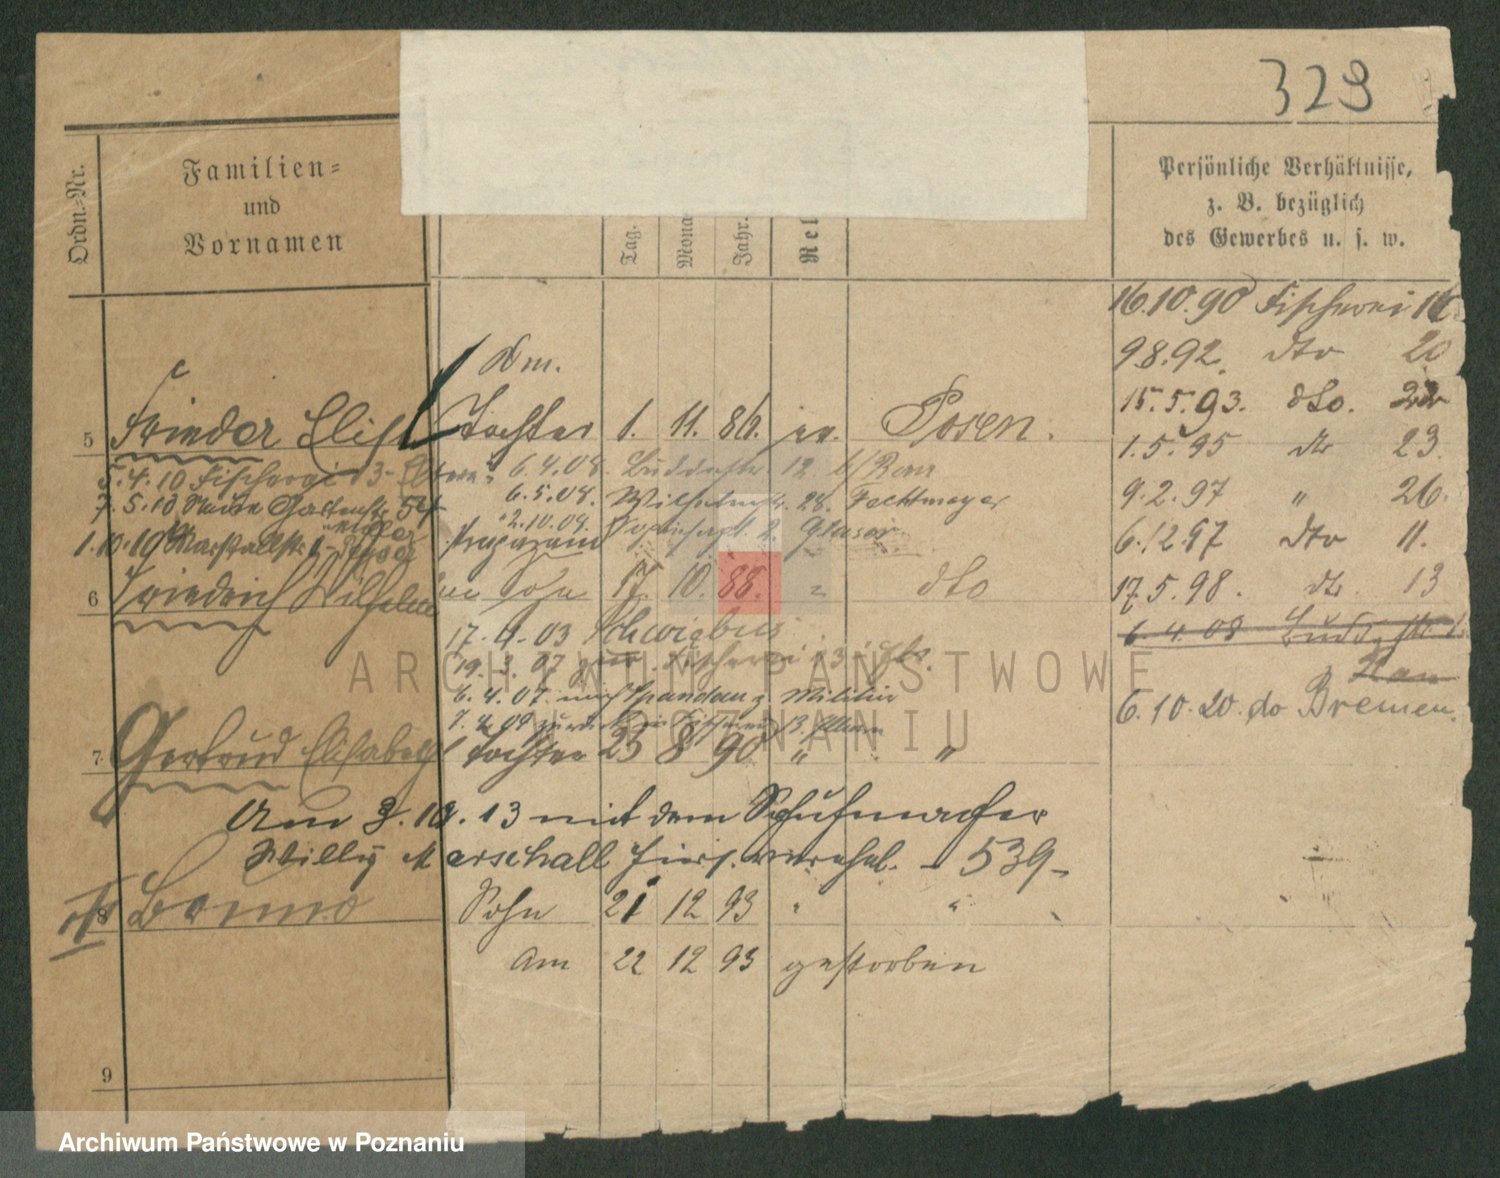 329
Ordn.-Nr.
Familien-
und
Vornamen
Tag.
Mona
Jahr.
Rel
Persönliche Verhältnisse,
z. B. bezüglich
des Gewerbes u. s. w.
16.10.90 Fischerei 16
9.8.92. dto 20
15.5.93. dto. 22
1.5.95 dto 23.
9.2.97 " 26.
6.12.97 dto 11.
17.5.98. dto 13
6.4.08
6.10.20. do Bremen.
5 Frieda Tochter 1. 11. 86. ev. Posen.
5.4.10 Fischerei 3
6.4.08. 12
7.5.10 Neue Gartenstr. 54
6.5.08. Wilhelmstr. 28. Fechtmeyer
1.10.10 Marstallstr.
2.10.09. 2. Glaser.
6 Friedrich Wilhelm Sohn 17. 10. 88. " dto
17.9.03 Schwiebus
19.3.07 Fischerei 3
6.4.07. nach Spandau z. Militär
7 Gertrud Elisabeth Tochter 23 8 90 " "
Am 3.10.13 mit dem Schuhmacher
Willy Marschall hier verehel. - 539 -
8 Benno Sohn 21 12 93 " "
Am 22 12 93 gestorben
9
ARCHIWUM PAŃSTWOWE
W POZNANIU
Archiwum Państwowe w Poznaniu